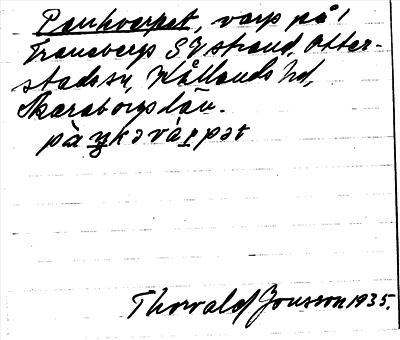 Pankvarpet, varp på
Traneberg SV strand, Otter-
stads sn, Kållands hd,
Skaraborgs län.
Thorvald Jonsson 1935.